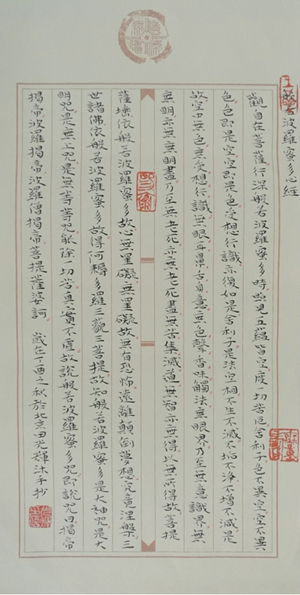 般若波羅蜜多心經
觀自在菩薩行深般若波羅蜜多時照見五蘊皆空度一切苦厄舍利子色不異空空不異
色色即是空空即是色受想行識亦復如是舍利子是法空相不生不滅不垢不淨不增不減是
故空中無色無受想行識無眼耳鼻舌身意無色聲香味觸法無眼界乃至無意識界無
無明亦無無明盡乃至無老死亦無老死盡無苦集滅道無智亦無得以無所得故菩提
薩埵依般若波羅蜜多故心無罣礙無罣礙故無有恐怖遠離顛倒夢想究竟涅槃三
世諸佛依般若波羅蜜多故得阿耨多羅三藐三菩提故知般若波羅蜜多是大神咒是大
明咒是無上咒是無等等咒能除一切苦真實不虛故說般若波羅蜜多咒即說咒曰揭帝
揭帝波羅揭帝波羅僧揭帝菩提薩婆訶 歲在丁酉之秋於北京 沐手抄